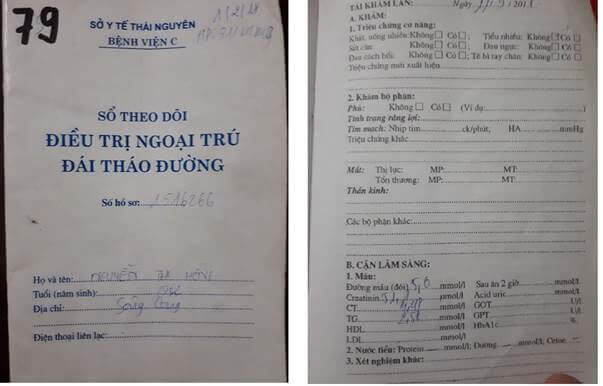 79
SỞ Y TẾ THÁI NGUYÊN
BỆNH VIỆN C
SỔ THEO DÕI
ĐIỀU TRỊ NGOẠI TRÚ
ĐÁI THÁO ĐƯỜNG
Số hồ sơ: 1516266
Họ và tên: NGUYỄN THỊ
Tuổi (năm sinh):
Địa chỉ: Sông Công
Điện thoại liên lạc:
TÁI KHÁM LẦN: Ngày
A. KHÁM:
1. Triệu chứng cơ năng:
Khát, uống nhiều: Không☐ Có☐; Tiểu nhiều: Không☐ Có☐
Sút cân: Không☐ Có☐; Đau ngực: Không☐ Có☐
Đau cách hồi: Không☐ Có☐; Tê bì tay chân: Không☐ Có☐
Triệu chứng mới xuất hiện
2. Khám bộ phận:
Phù: Không☐ Có☐ (Ví dụ: )
Tình trạng răng lợi:
Tim mạch: Nhịp tim ck/phút; HA mmHg
Triệu chứng khác:
Mắt: Thị lực: MP: MT:
Tổn thương: MP: MT:
Thần kinh:
Các bộ phận khác:
B. CẬN LÂM SÀNG:
1. Máu:
Đường máu (đói) 5,0 mmol/l Sau ăn 2 giờ mmol/l
Creatinin mmol/l Acid uric mmol/l
CT mmol/l GOT U/l
TG mmol/l GPT U/l
HDL mmol/l HbA1c
LDL mmol/l
2. Nước tiểu: Protein mmol/l; Đường mmol/l, Cetoe
3. Xét nghiệm khác: